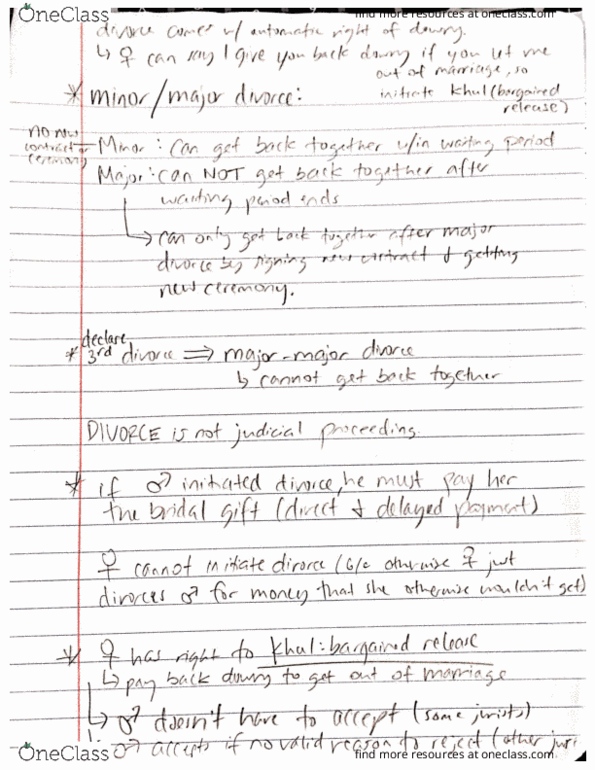 OneClass
find more resources at oneclass.com
divorce comes w/ automatic right of dowry.
↳ ♀ can say I give you back dowry if you let me
out of marriage, so
* minor/major divorce: initiate khul (bargained
release)
no new
contract or
ceremony
Minor: Can get back together w/in waiting period
Major: can NOT get back together after
waiting period ends
↳ can only get back together after major
divorce by signing new contract & getting
new ceremony.
declare
* 3rd divorce ⇒ major-major divorce
↳ cannot get back together
DIVORCE is not judicial proceeding.
* if ♂ initiated divorce, he must pay her
the bridal gift (direct & delayed payment)
♀ cannot initiate divorce (b/c otherwise ♀ just
divorces ♂ for money that she otherwise wouldn't get)
* ♀ has right to khul: bargained release
↳ pay back dowry to get out of marriage
↳ ♂ doesn't have to accept (some jurists)
↳ ♂ accepts if no valid reason to reject (other juri
OneClass
find more resources at oneclass.com